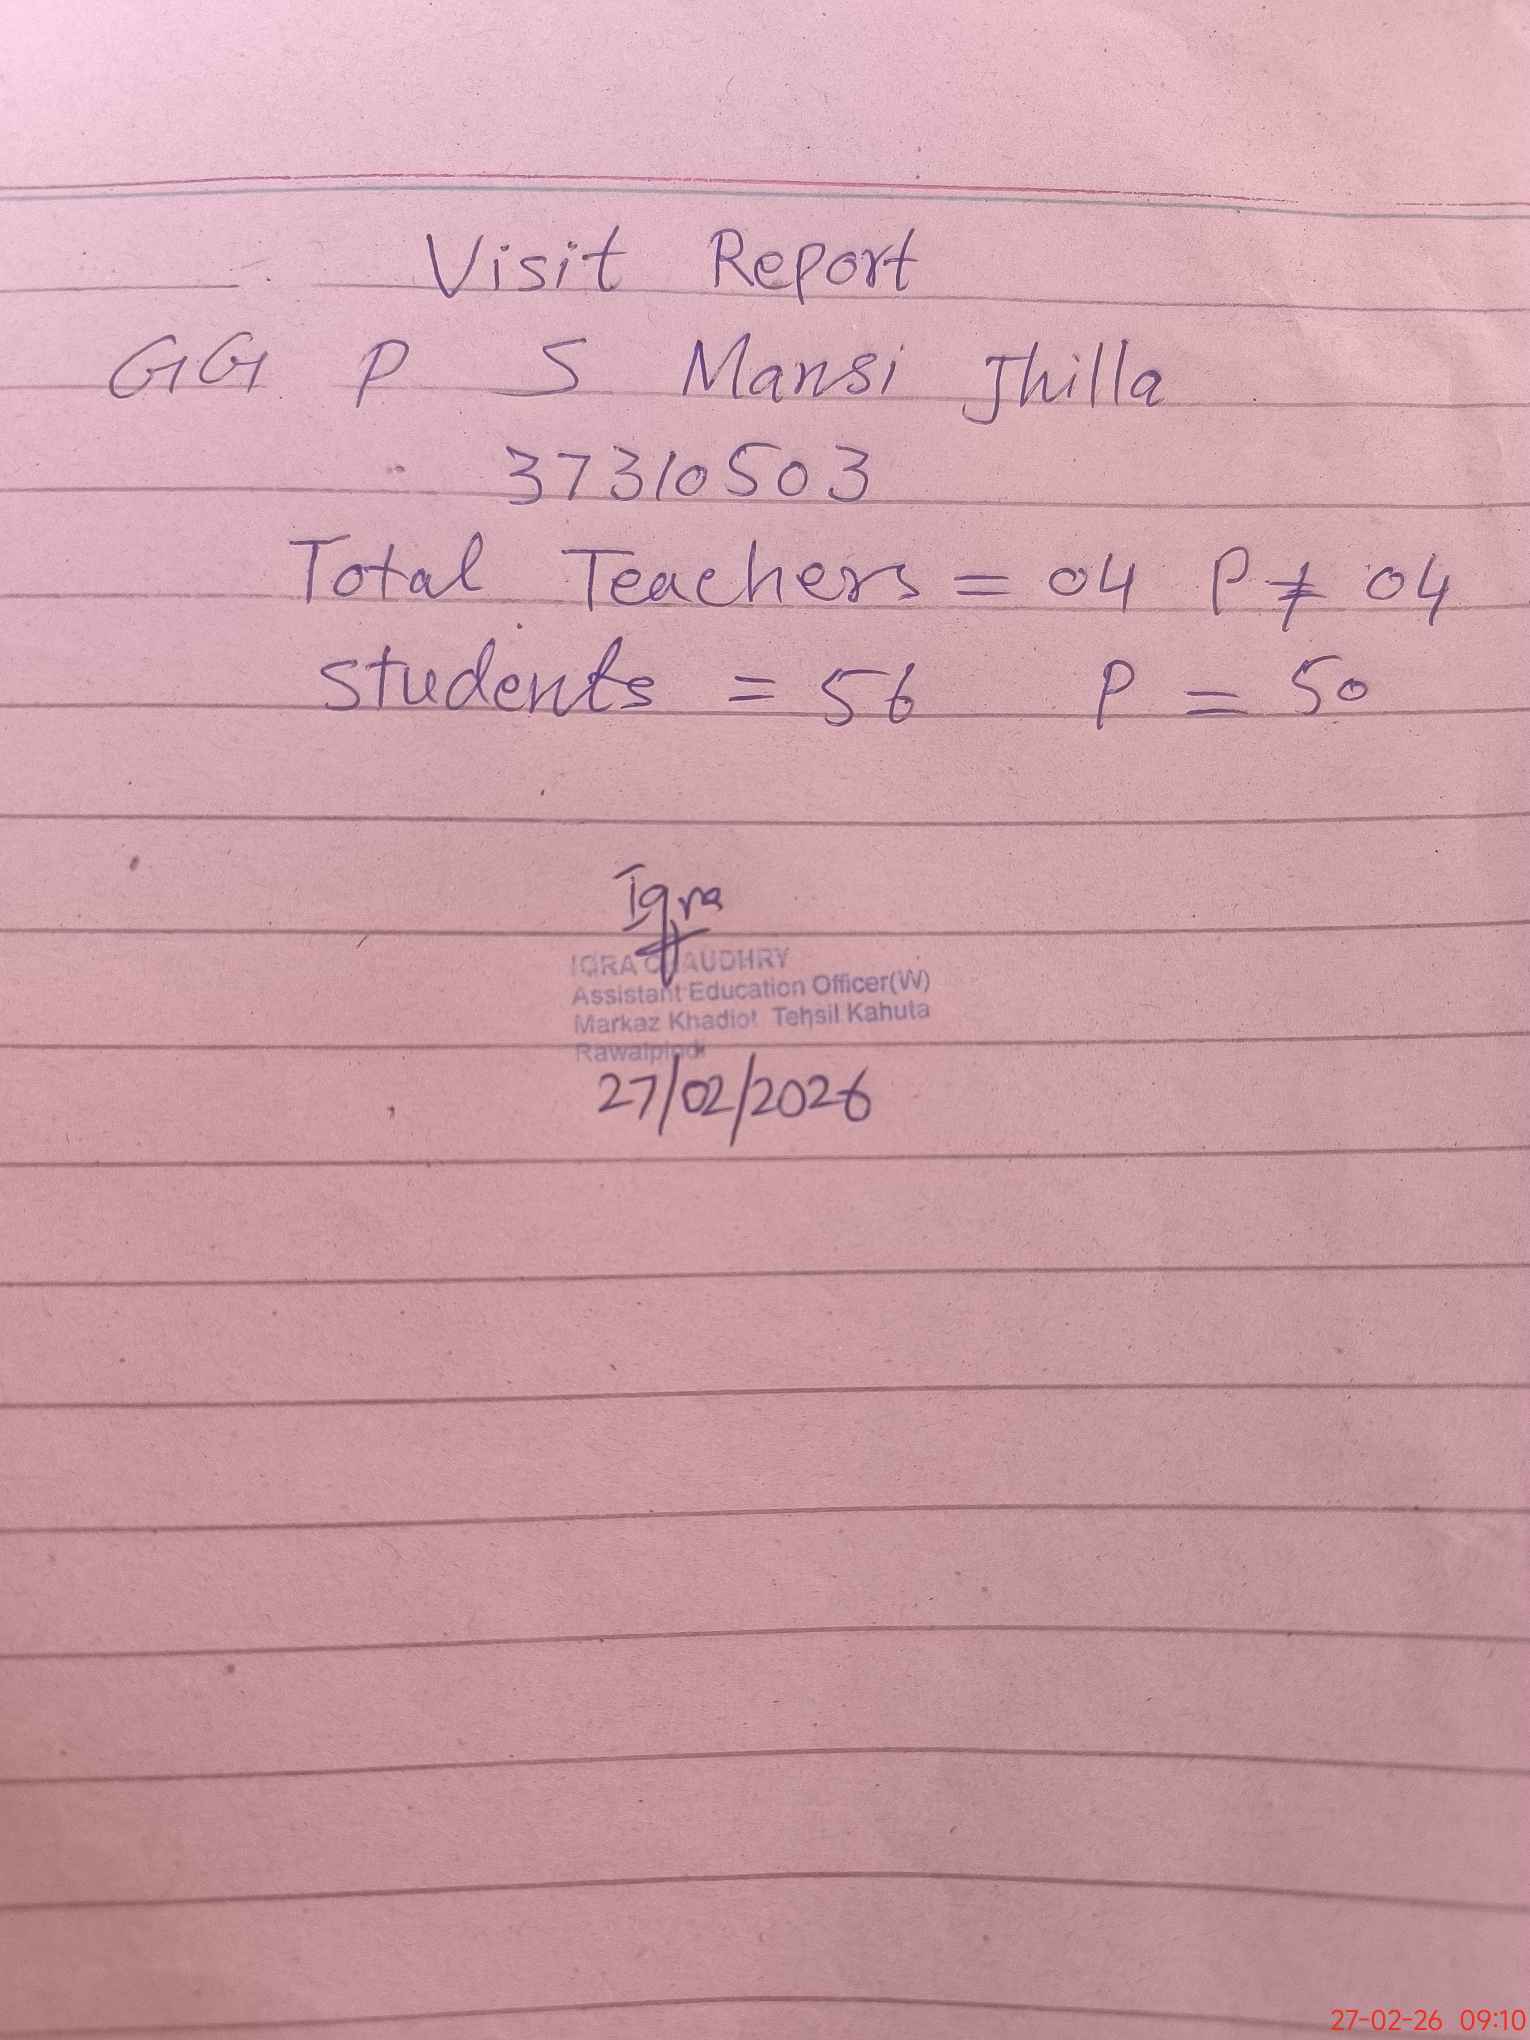 Visit Report
GG P S Mansi Jhilla
37310503
Total Teachers = 04 P = 04
Students = 56 P = 50
Iqra
IQRA CHAUDHRY
Assistant Education Officer(W)
Markaz Khadiot Tehsil Kahuta
Rawalpindi
27/02/2026
27-02-26 09:10